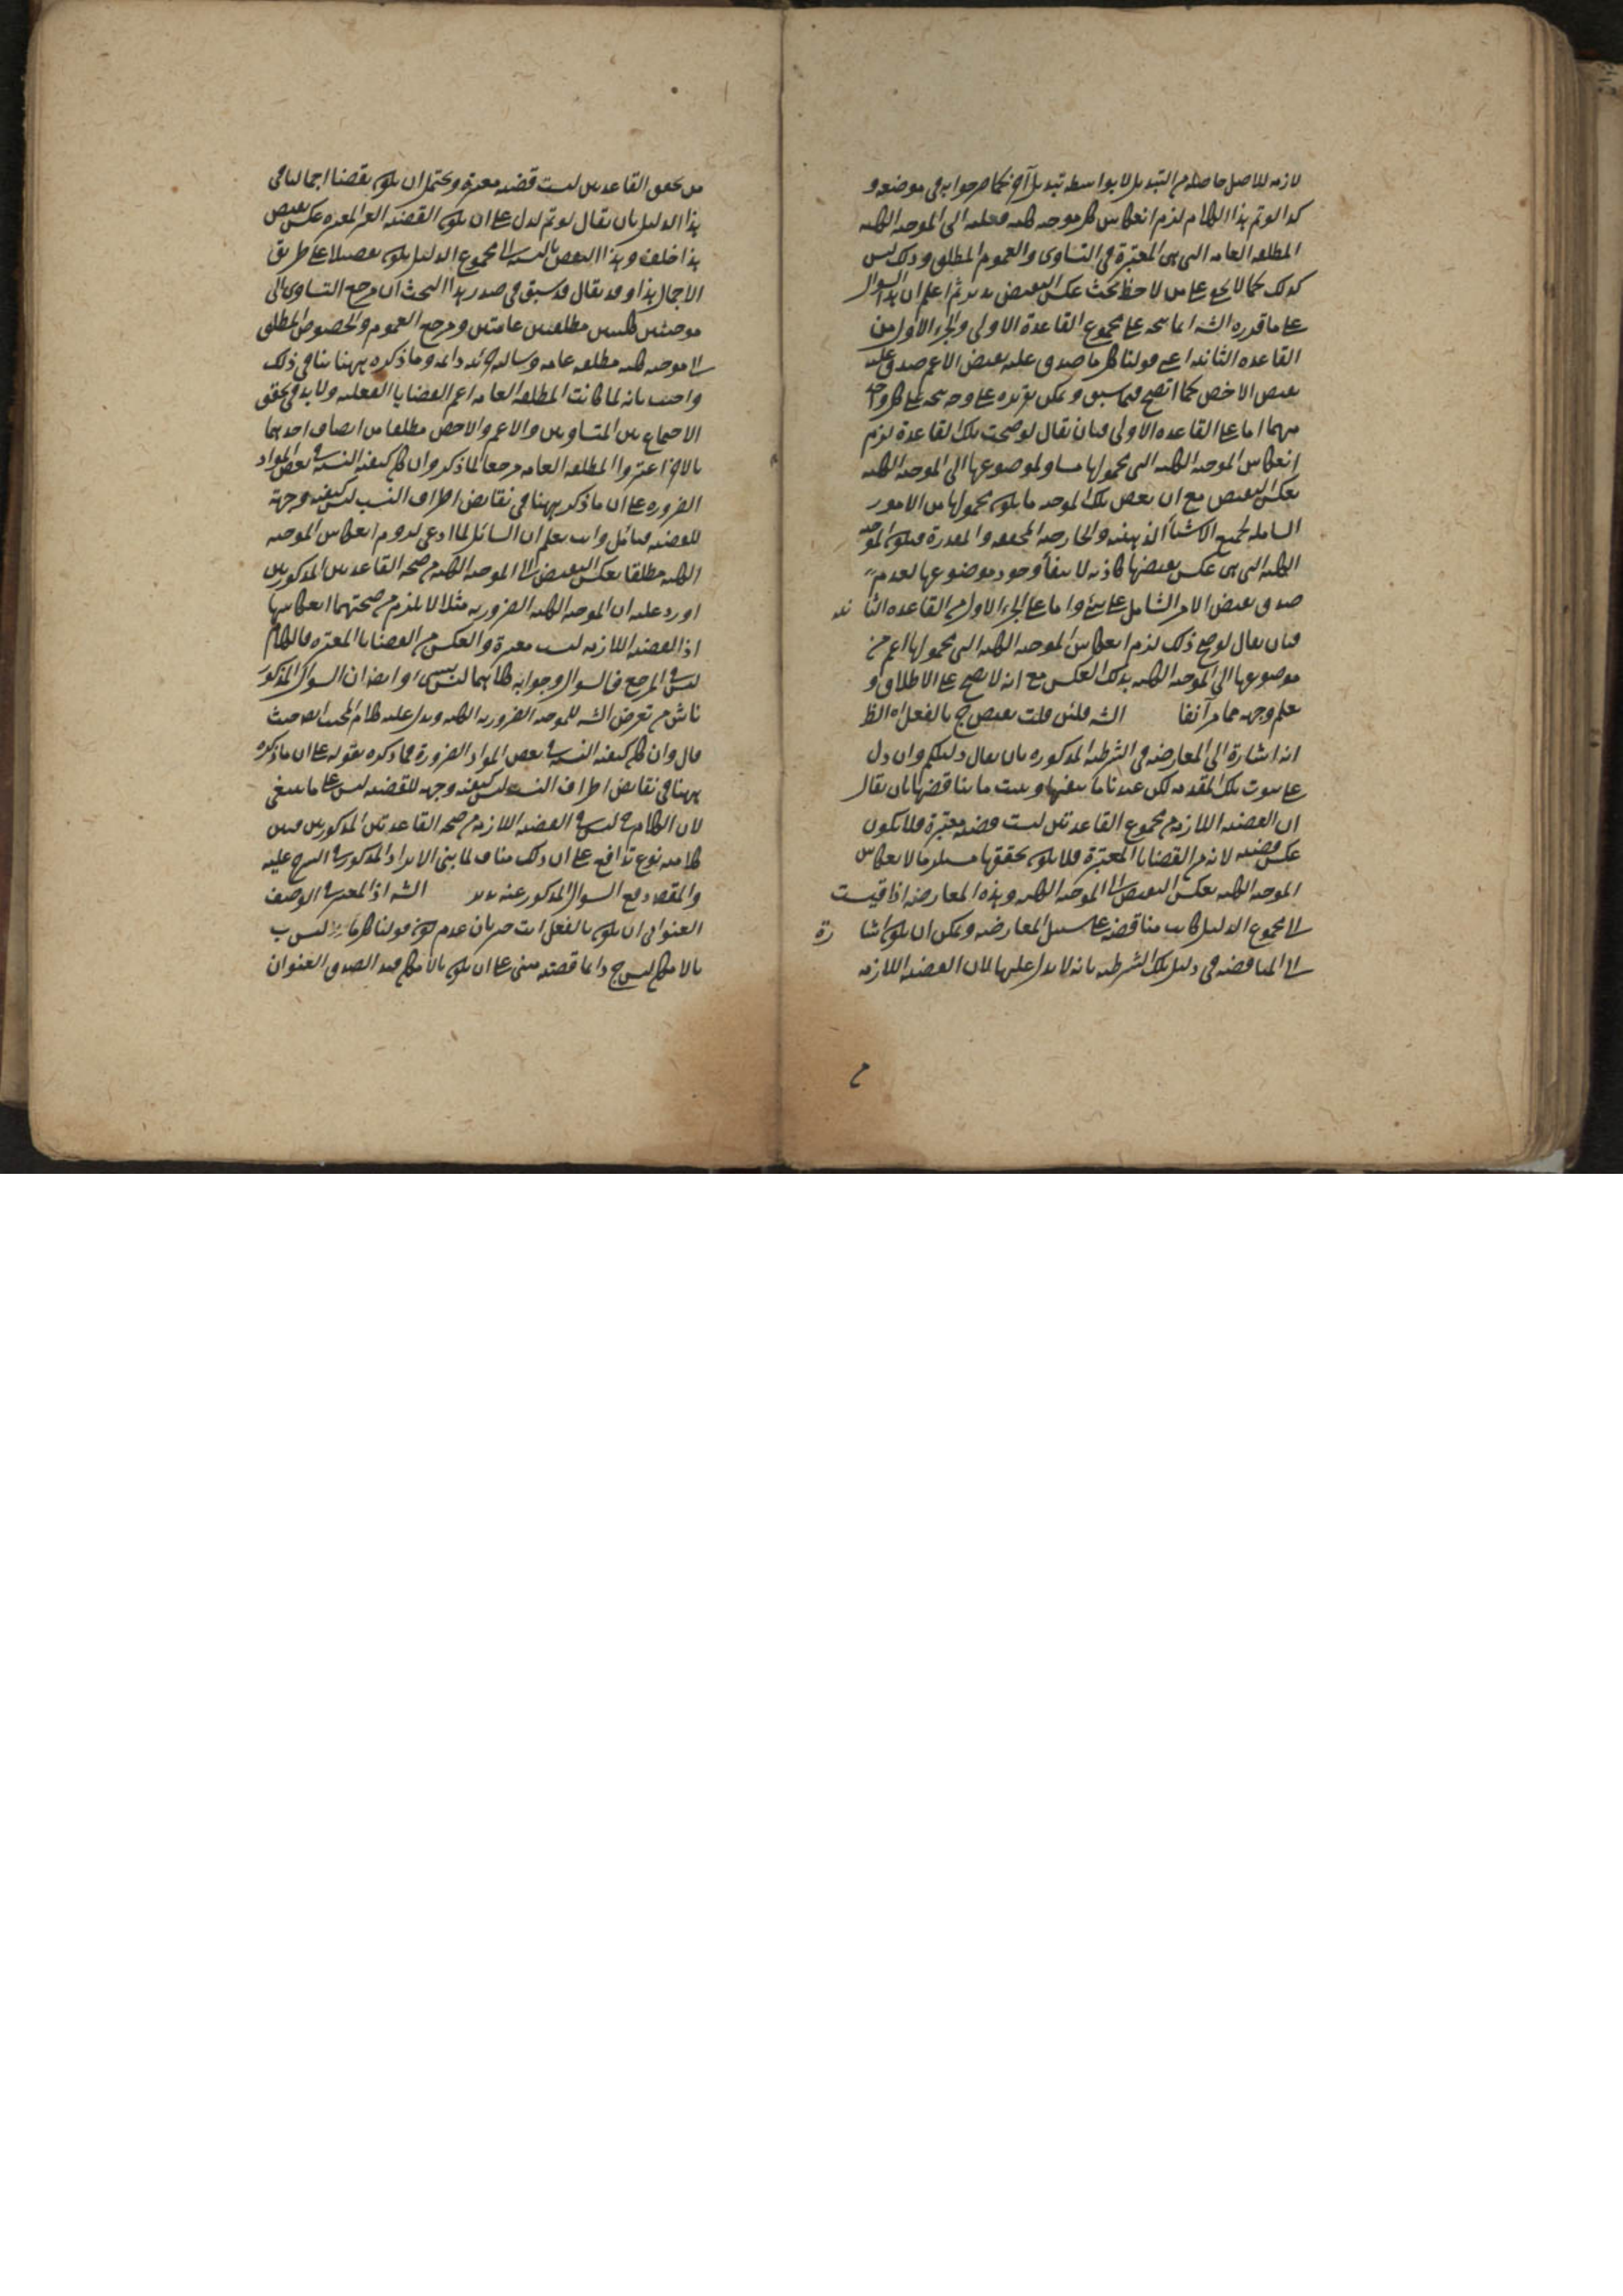 لازمه للاصل حاصله من التبديل لا بواسطه تبديل آخر كما صرحوا به فى موضعه و
كذا لو تم هذا الكلام لزم انعكاس كل موجبه كليه فعليه الى الموجبه الكليه
المطلقه العامه التى هى المعتبرة فى التساوى والعموم المطلق وذلك ليس
كذلك كما لا يخفى على من لاحظ بحث عكس النقيض تدبر ثم اعلم ان هذا السوال
على ما قدره الشه انما يتجه على مجموع القاعدة الاولى والجزء الاول من
القاعده الثانيه اعنى قولنا كل ما صدق عليه نقيض الاعم صدق عليه
نقيض الاخص كما اتضح فيما سبق ويمكن تقريره على وجه يتجه على كل واحد
منهما اما على القاعده الاولى فبان يقال لو صحت تلك القاعدة لزم
انعكاس الموجبه الكليه التى محمولها مساو لموضوعها الى الموجبه الكليه
بعكس النقيض مع ان بعض تلك الموجبه ما يكون محمولها من الامور
الشامله لجميع الاشيأ الذهنيه والخارجيه المحققه والمقدرة فيكون الموجبه
الكليه التى هى عكس نقيضها كاذبه لانتفأ وجود موضوعها لعدم
صدق نقيض الامر الشامل على شئ واما على الجزء الاول من القاعده الثانيه
فبان يقال لو صح ذلك لزم انعكاس الموجبه الكليه التى محمولها اعم من
موضوعها الى الموجبه الكليه بذلك العكس مع انه لا يصح على الاطلاق و
يعلم وجهه مما مر آنفا الشه فلئن قلت نقيض ج بالفعل اه الظ
انه اشارة الى المعارضه فى الشرطيه المذكوره بان يقال دليلكم وان دل
على ثبوت تلك المقدمه لكن عندنا ما ينفيها ويثبت ما يناقضها بان يقال
ان القضيه اللازمه من مجموع القاعدتين ليست قضيه معتبرة فلا تكون
عكس قضيه لانه من القضايا المعتبرة فلا يكون تحققها مستلزما لانعكاس
الموجبه الكليه بعكس النقيض الى الموجبه الكليه وهذه المعارضه اذا قيست
الى مجموع الدليل كانت مناقضه على سبيل المعارضه ويمكن ان يكون اشارة
الى المناقضه فى دليل تلك الشرطيه بانه لا يدل عليها لان القضيه اللازمه
من تحقق القاعدتين ليست قضيه معتبرة ويحتمل ان يكون نقضا اجماليا فى
هذا الدليل بان يقال لو تم لدل على ان يكون القضيه الغير المعتبره عكس نقيض
هذا خلف وهذا النقض بالنسبه الى مجموع الدليل يكون تفصيليا على طريق
الاجمال هذا وقد يقال قد سبق فى صدر هذا البحث ان مرجع التساوى الى
موجبتين كليتين مطلقتين عامتين ومرجع العموم والخصوص المطلق
الى موجبه كليه مطلقه عامه وسالبه جزئيه دائمه وما ذكره ههنا ينافى ذلك
واجيب بانه لما كانت المطلقه العامه اعم القضايا الفعليه ولا بد فى تحقق
الاجتماع بين المتساويين والاعم والاخص مطلقا من اتصاف احدهما
بالاخر اعتبروا المطلقه العامه مرجعا لما ذكر وان كان كيفيه النسبه فى بعض المواد
الضروره على ان ما ذكر ههنا فى نقايض اطراف النسب ليس كيفيه وجهة
للقضيه فتأمل وانت تعلم ان السائل لما ادعى لزوم انعكاس الموجبه
الكليه مطلقا بعكس النقيض الى الموجبه الكليه من صحه القاعدتين المذكورتين
اورد عليه ان الموجبه الكليه الضروريه مثلا لا يلزم من صحتهما انعكاسها
اذ القضيه اللازمه ليست معتبرة والعكس من القضايا المعتبره فالكلام
ليس فى المرجع فالسوال وجوابه كلاهما ليس بشئ وايضا ان السوال المذكور
ناش من تعرض الشه للموجبه الضروريه الكليه ويدل عليه كلام المجيب ايضا حيث
قال وان كان كيفيه النسبه فى بعض المواد الضرورة فما ذكره بقوله على ان ما ذكره
ههنا فى نقايض اطراف النسب ليس كيفيه وجهه للقضيه ليس على ما ينبغى
لان الكلام فى ليس فى القضيه اللازمه من صحه القاعدتين المذكورتين فبين
كلاميه نوع تدافع على ان ذلك مناف لما بنى الايراد المذكور فى الشرح عليه
والمقصد دفع السوال المذكور عنه تدبر الشه اذ المعتبر فى الوصف
العنوانى ان يكون بالفعل اثبت جريان عدم كون قولنا كل ما ليس ب
بالامكان ليس ج دائما قضيه مبنى على ان يكون بالامكان قيد الصدق العنوان